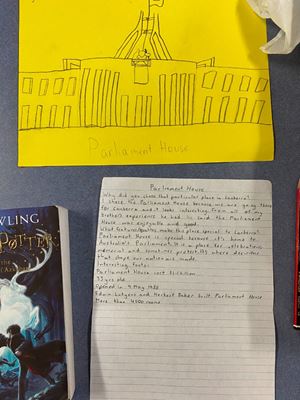 Parliament House
Parliament House
Why did you chose that particular place in Canberra?
I chose the Parliament House because we are going there
for Canberra and it looks interesting. From all of my
Brothers experience he had he said the Parliament
House was enjoyable and good.
What features/ makes the place special to Canberra?
Parliament House is special because it's home to
Australia's Parliament. It is a place for celebration
memorial and sometimes protest. It's where decisions
that shape our nation is made.
Interesting facts:
Parliament House cost $1.1 billion
33 yrs old
Opened in 9 May 1988
Edwin Lutyens and Herbert Baker built Parliament House
More than 4500 rooms
WLING
POTTER